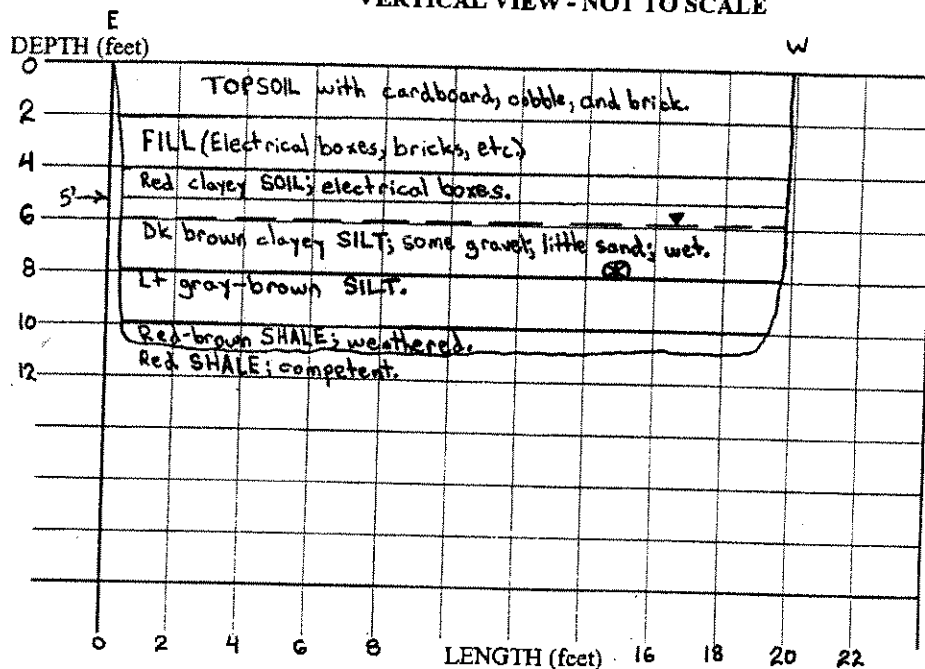 VERTICAL VIEW - NOT TO SCALE
E
DEPTH (feet)
W
0
TOPSOIL with cardboard, cobble, and brick.
2
FILL (Electrical boxes, bricks, etc.)
4
Red clayey SOIL; electrical boxes.
5'→
6
Dk brown clayey SILT; some gravel; little sand; wet.
8
Lt gray-brown SILT.
10
Red-brown SHALE; weathered.
Red SHALE; competent.
12
0 2 4 6 8 LENGTH (feet) 16 18 20 22